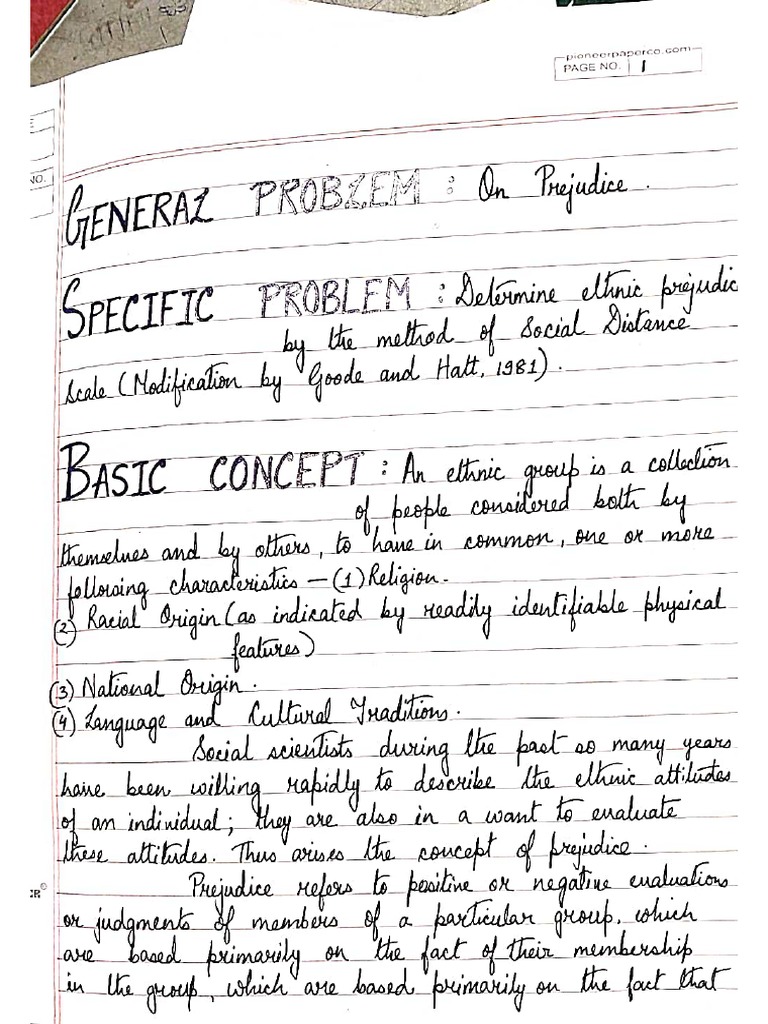 pioneerpaperco.com
PAGE NO. 1
NO.
GENERAL PROBLEM : On Prejudice.
SPECIFIC PROBLEM : Determine ethnic prejudic
by the method of Social Distance
Scale (Modification by Goode and Hatt, 1981).
BASIC CONCEPT : An ethnic group is a collection
of people considered both by
themselves and by others, to have in common, one or more
following characteristics — (1) Religion.
(2) Racial Origin (as indicated by readily identifiable physical
features)
(3) National Origin.
(4) Language and Cultural Traditions.
Social scientists during the past so many years
have been willing rapidly to describe the ethnic attitudes
of an individual; they are also in a want to evaluate
these attitudes. Thus arises the concept of prejudice.
Prejudice refers to positive or negative evaluations
or judgments of members of a particular group, which
are based primarily on the fact of their membership
in the group, which are based primarily on the fact that